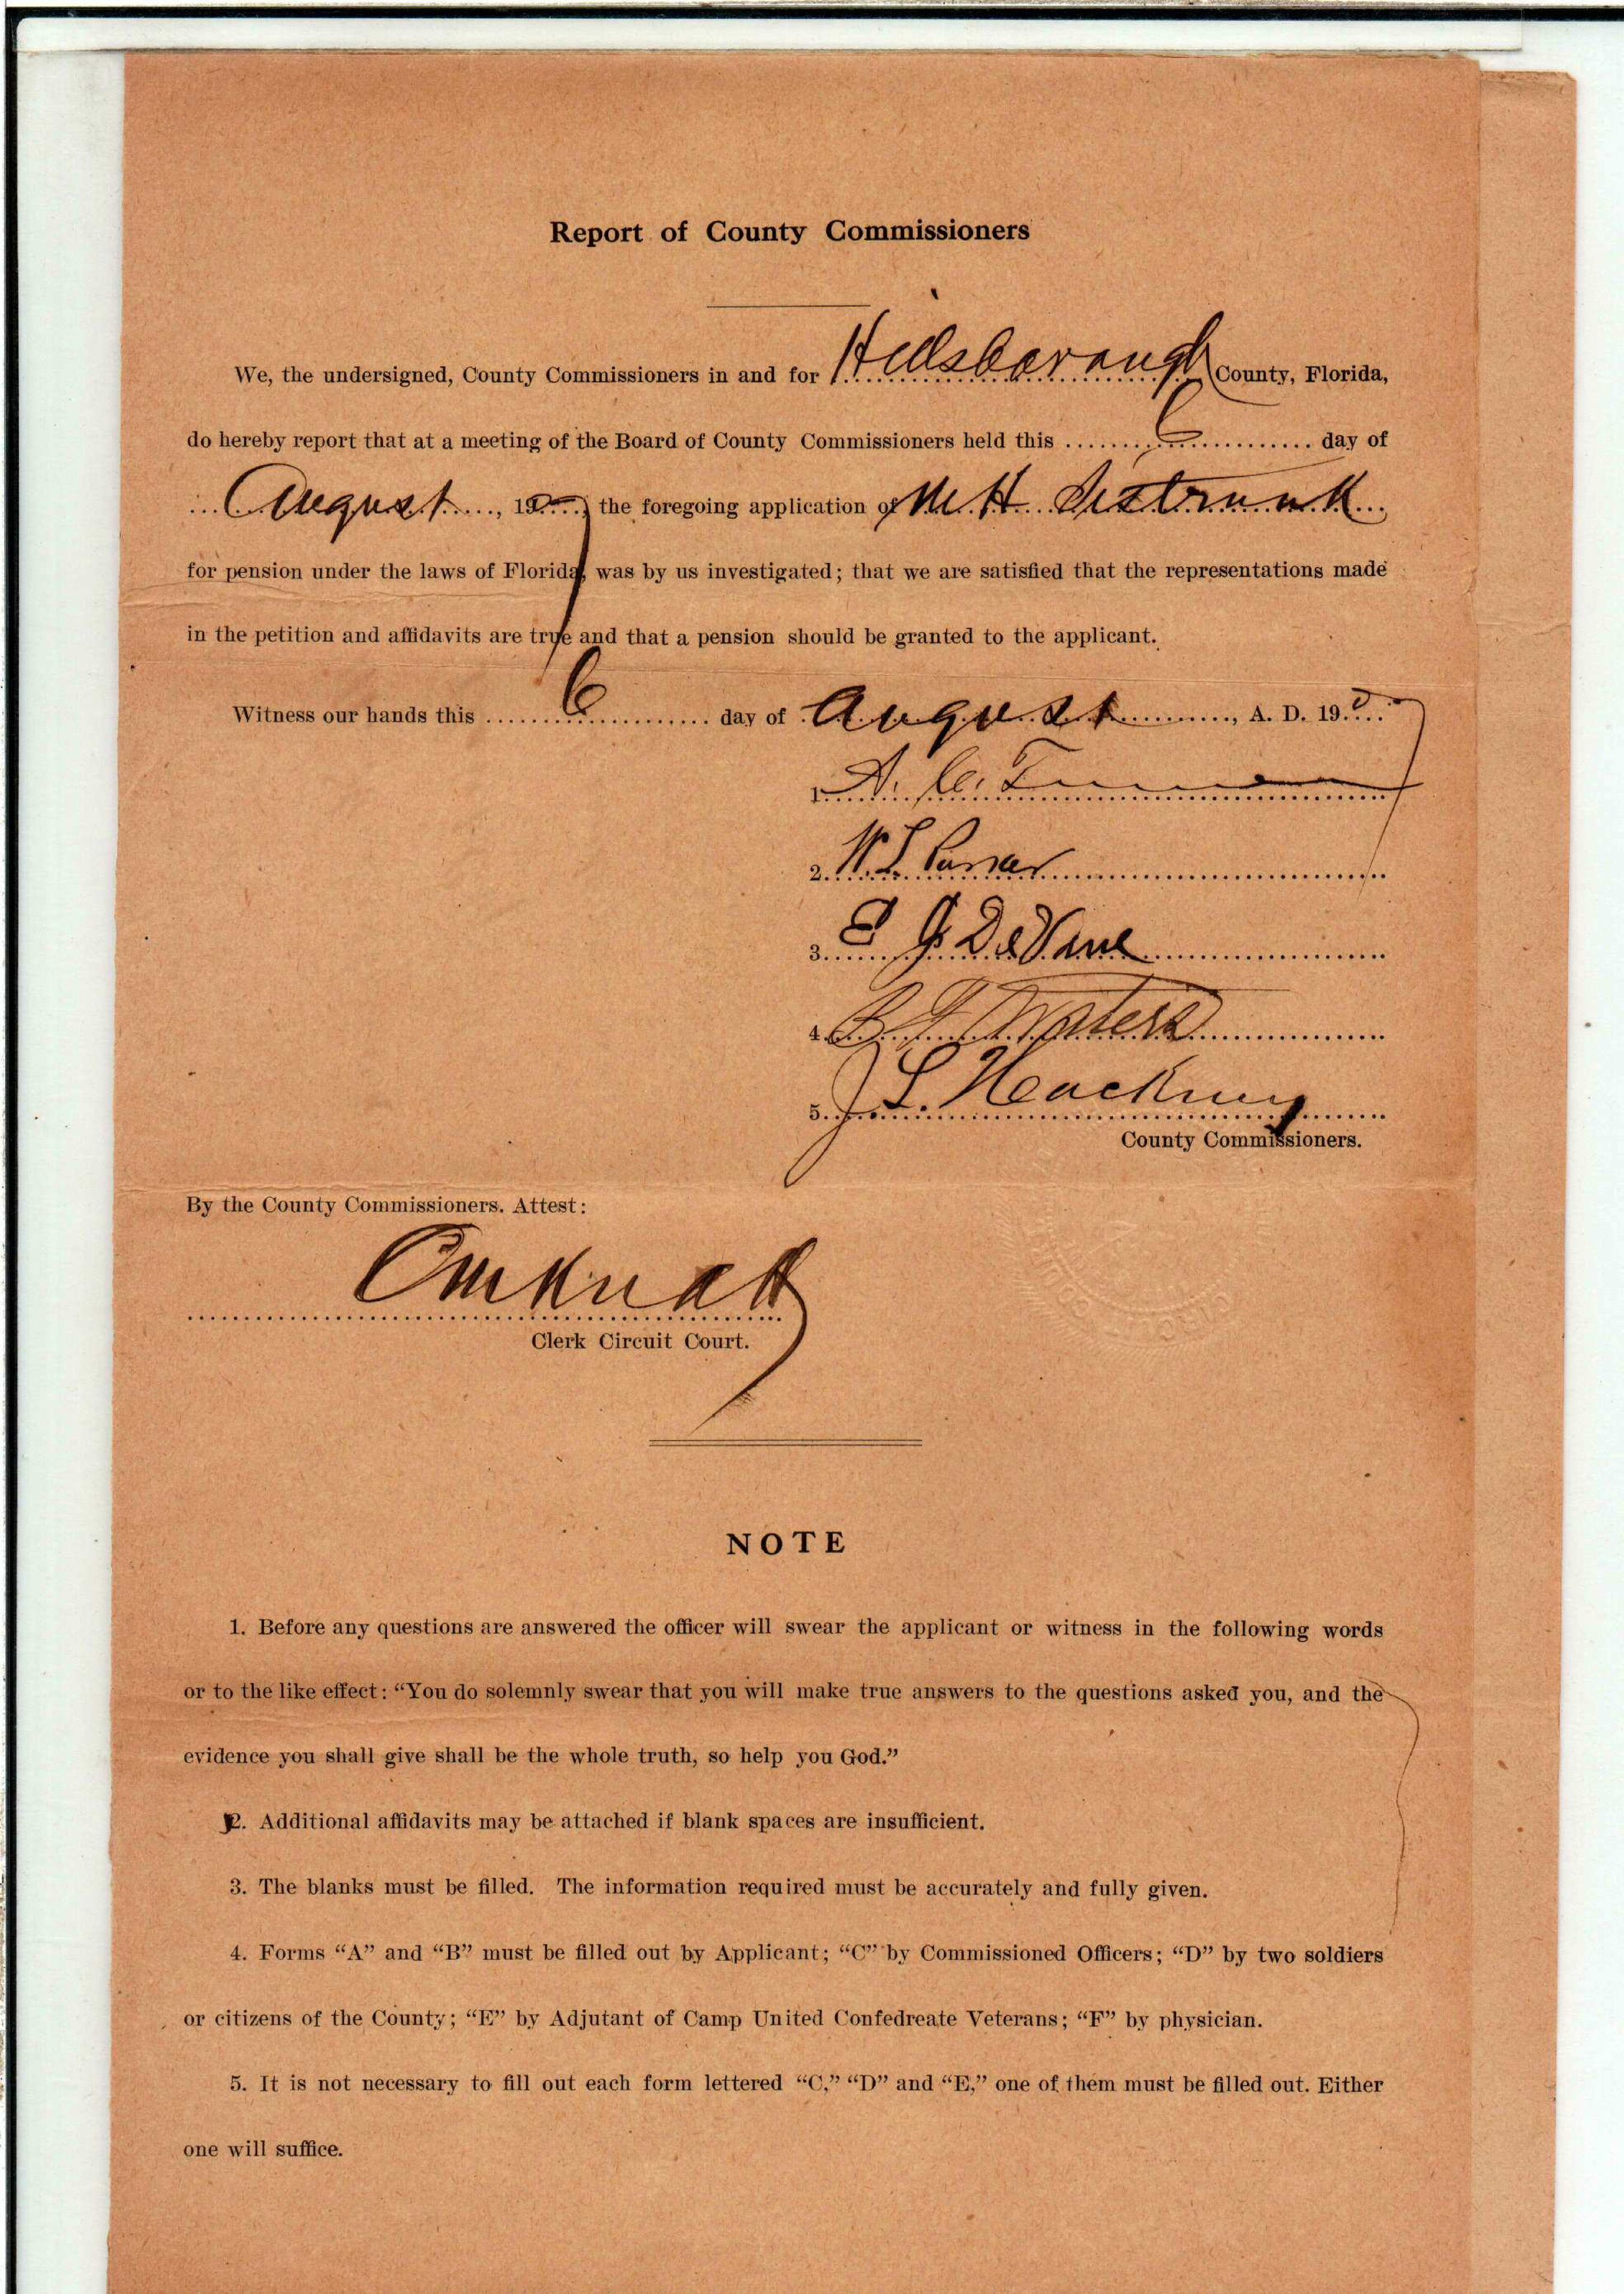 Report of County Commissioners
We, the undersigned, County Commissioners in and for Hillsborough County, Florida,
do hereby report that at a meeting of the Board of County Commissioners held this 6 day of
August, 1907 the foregoing application of M. H. Sistrunk
for pension under the laws of Florida, was by us investigated; that we are satisfied that the representations made
in the petition and affidavits are true and that a pension should be granted to the applicant.
Witness our hands this 6 day of August, A. D. 1907
1.
2. W. L.
3. J. DeVane
4. Waters
5. J L. Hackney
County Commissioners.
By the County Commissioners. Attest:
Clerk Circuit Court.
NOTE
1. Before any questions are answered the officer will swear the applicant or witness in the following words
or to the like effect: “You do solemnly swear that you will make true answers to the questions asked you, and the
evidence you shall give shall be the whole truth, so help you God.”
2. Additional affidavits may be attached if blank spaces are insufficient.
3. The blanks must be filled. The information required must be accurately and fully given.
4. Forms “A” and “B” must be filled out by Applicant; “C” by Commissioned Officers; “D” by two soldiers
or citizens of the County; “E” by Adjutant of Camp United Confedreate Veterans; “F” by physician.
5. It is not necessary to fill out each form lettered “C,” “D” and “E,” one of them must be filled out. Either
one will suffice.